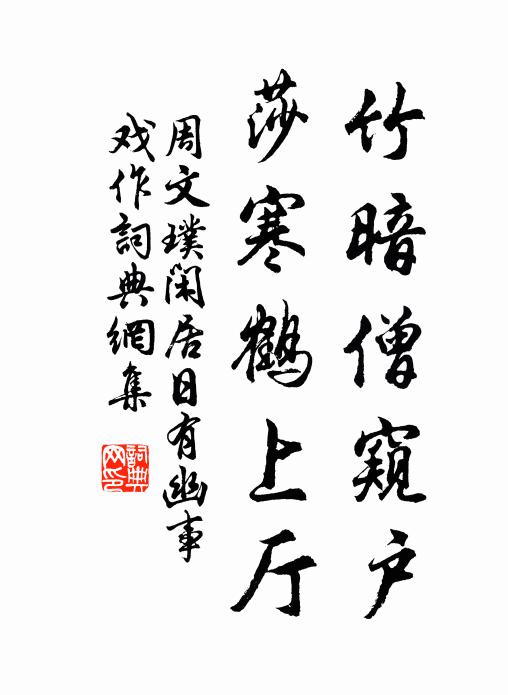 竹暗僧窥户
莎寒鹤上厅
周文璞闲居日有幽事
戏作詞典網集
詞典网印